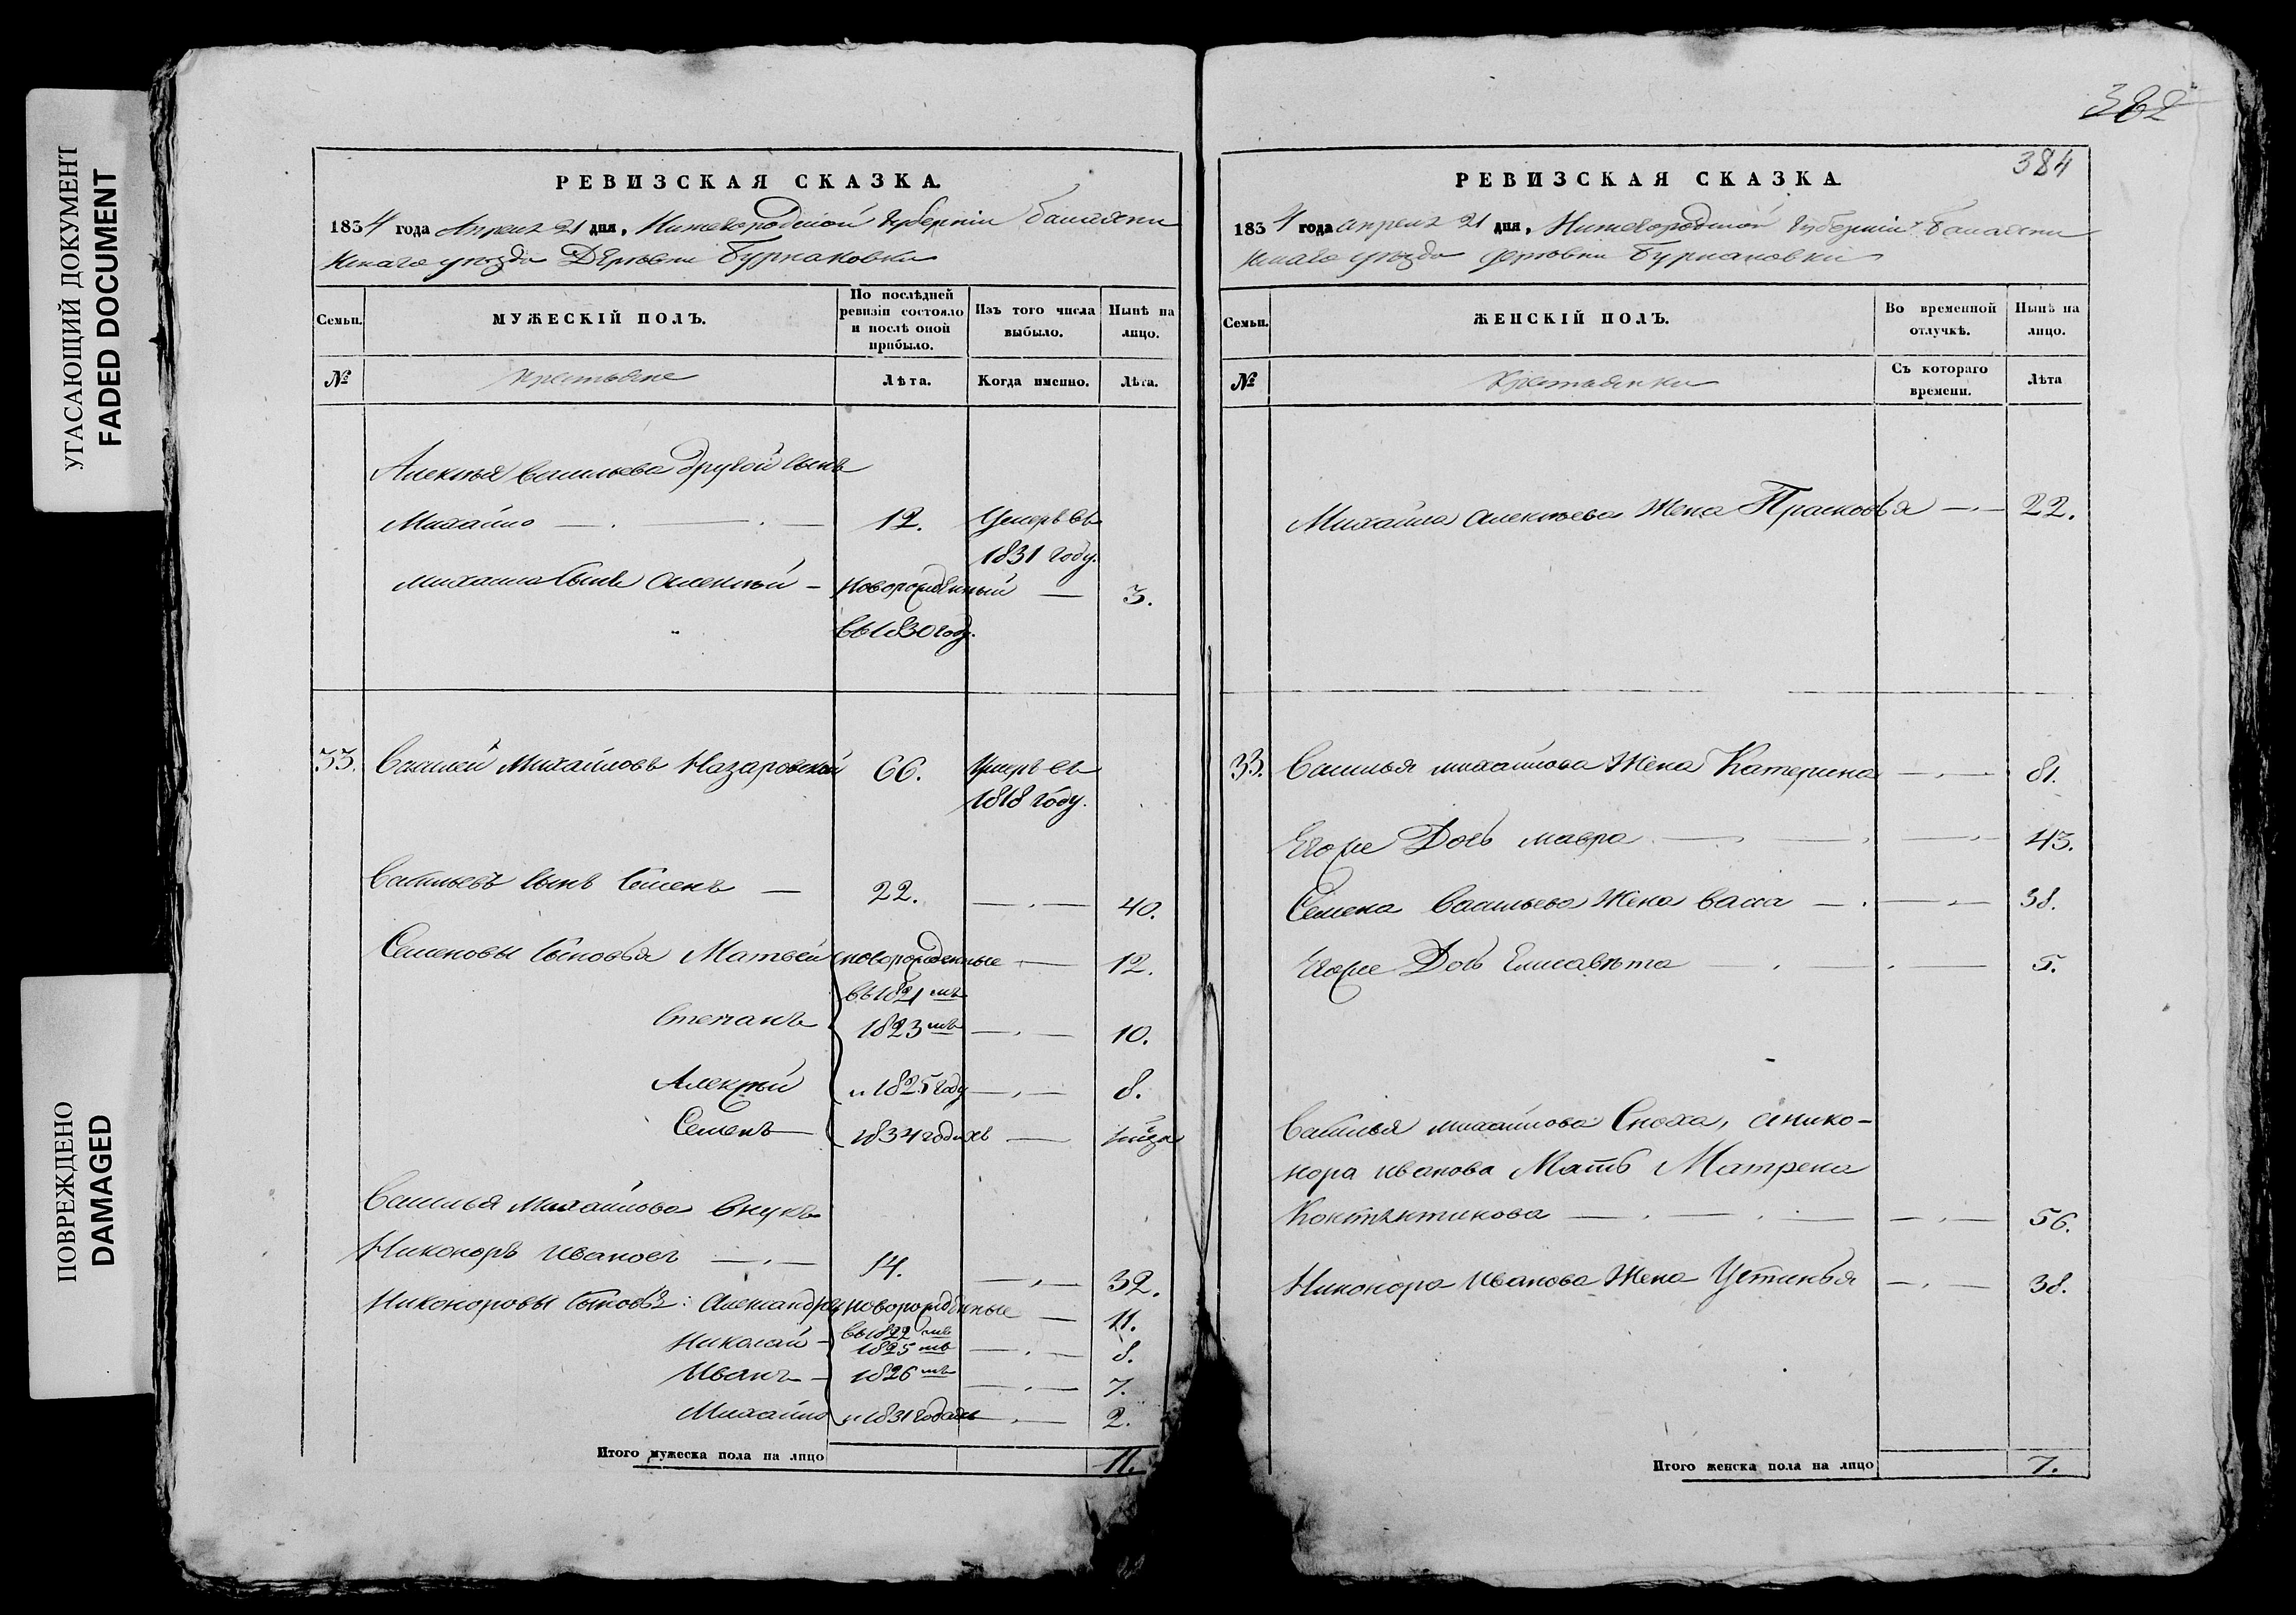 УГАСАЮЩИЙ ДОКУМЕНТ
FADED DOCUMENT
ПОВРЕЖДЕНО
DAMAGED
РЕВИЗСКАЯ СКАЗКА.
1834 года Апреля 21 дня, Нижегородской Губернiи Балахни
нскаго уезда Деревни Бурнаковки
Семьи. МУЖЕСКIЙ ПОЛЪ. По послѣдней ревизiи состояло и послѣ оной прибыло. Изъ того числа выбыло. Нынѣ на лицо.
№ Крестьяне Лѣта. Когда именно. Лѣта.
Алексѣя Васильева другой сынъ
Михайло 12. Умеръ въ
1831 году.
Михаила Сынъ Алексѣй новорожденный 3.
въ 1830 году.
33. Василей Михайловъ Назаровской 66. Умеръ въ
1818 году.
Васильевъ сынъ Семенъ 22. 40.
Семеновы Сыновья Матвей новорожденные 12.
въ 1821 мъ
Степанъ 1823 мъ 10.
Алексѣй и 1825 году 8.
Семенъ 1834 годахъ
Василья Михайлова Внукъ
Никоноръ Ивановъ 14. 32.
Никоноровы сыновья: Александръ новорожденные 11.
въ 1822 мъ
Николай 1825 мъ 8.
Иванъ 1826 мъ 7.
Михайло и 1831 годахъ 2.
Итого мужеска пола на лицо 11.
382
384
РЕВИЗСКАЯ СКАЗКА
1834 года апреля 21 дня, Нижегородской Губернiи Балахни
нскаго уезда деревни Бурнаковки
Семьи. ЖЕНСКIЙ ПОЛЪ. Во временной отлучкѣ. Нынѣ на лицо.
№ Крестьянки Съ котораго времени. Лѣта
Михайла Алексѣева Жена Прасковья 22.
33. Василья Михайлова Жена Катерина 81.
Егоже Дочь Мавра 43.
Семена Васильева Жена Васса 38.
Егоже Дочь Елисавѣта 5.
Василья Михайлова Сноха, а Нико-
нора Иванова Мать Матрена
Константинова 56.
Никонора Иванова Жена Устинья 38.
Итого женска пола на лицо 7.